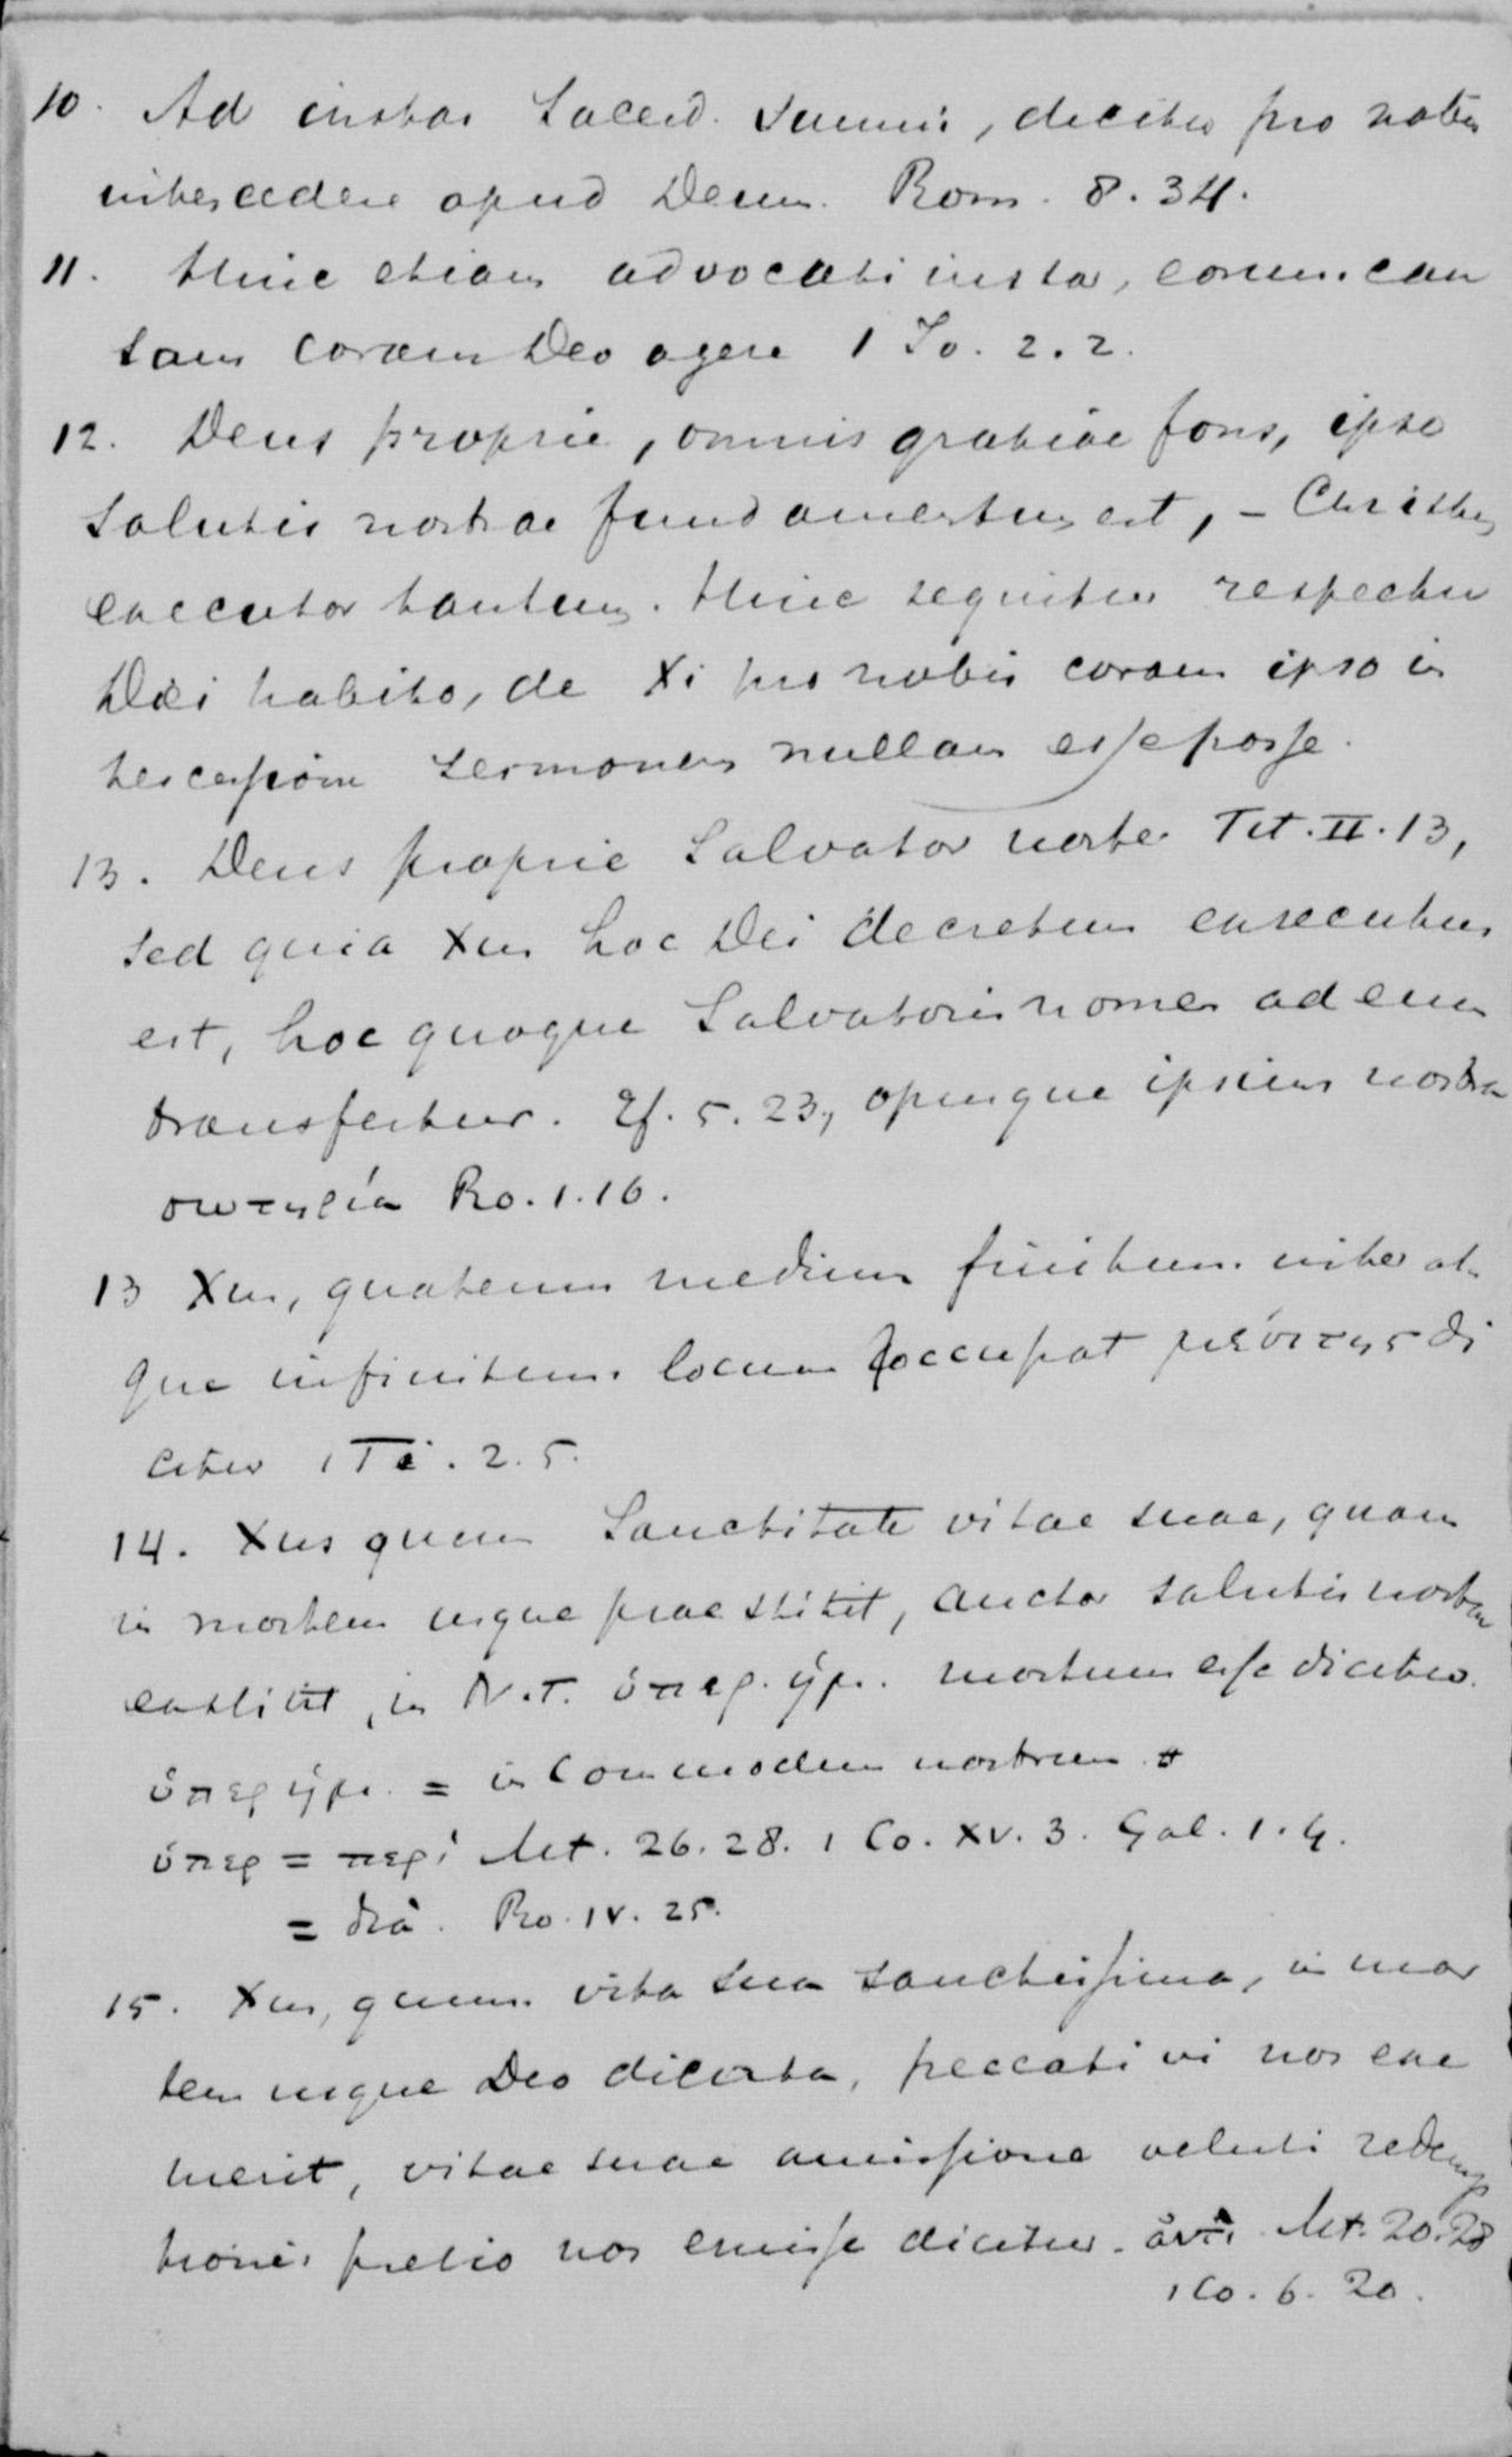 10. Ad instar Sacerd. Summi, dicitur pro nobis
intercedere apud Deum. Rom. 8.34.
11. Hinc etiam advocati instar, eorum cau
sam coram Deo agere 1 Jo. 2.2.
12. Deus proprie, omnis gratiae fons, ipse
Salutis nostrae fundamentum est, – Christus
executor tantum. Hinc sequitur respectu
Dei habito, de Xi pro nobis coram ipso in
tercessione sermonem nullam esse posse.
13. Deus proprie Salvator noster Tit. II. 13,
sed quia Xus hoc Dei decretum exsecutus
est, hoc quoque Salvatoris nomen ad eum
transfertur. Ef. 5.23, opusque ipsius nostra
σωτηρία Ro. 1.16.
13 Xus, quatenus medium finitum inter at
que infinitum locum occupat μεσίτης di
citur 1 Ti. 2.5.
14. Xus quum Sanctitate vitae suae, quam
in mortem usque praestitit, auctor salutis nostrae
exstitit, in N.T. ὑπερ ἡμ. mortuum esse dicitur.
ὑπερ ἡμ. = in commodum nostrum +
ὑπερ = περί Mt. 26.28. 1 Co. XV. 3. Gal. 1.4.
= διὰ. Ro. IV. 25.
15. Xus, quum vita sua sanctissima, in mor
tem usque Deo dicata, peccati vi nos exe
merit, vitae suae amissione veluti redemp
tionis pretio nos emisse dicitur. ἀντὶ Mt. 20.28
1 Co. 6. 20.